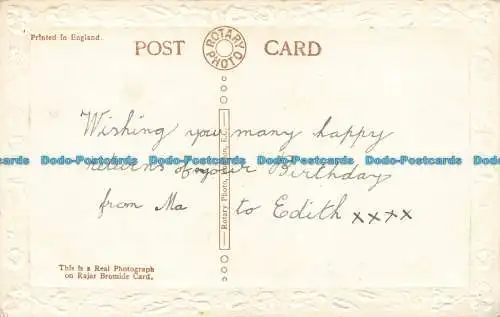 Printed in England.
POST CARD
ROTARY PHOTO
Wishing you many happy
Dodo-Postcards Dodo-Postcards Dodo-Postcards Dodo-Postcards
returns of your Birthday
from Ma to Edith xxxx
Rotary Photo, E.C.
This is a Real Photograph
on Rajar Bromide Card.